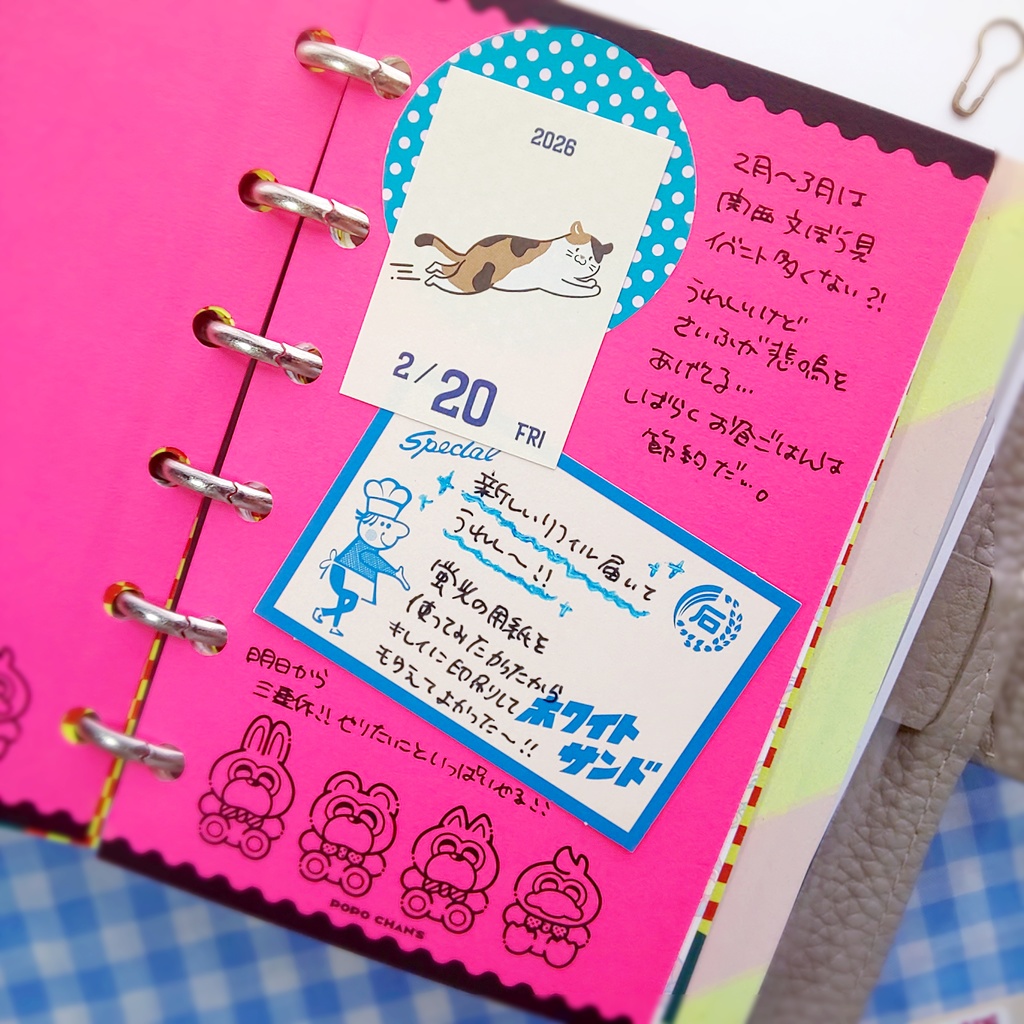 2026
2/20 FRI
2月〜3月は
関西文ぼう具
イベント多くない?!
うれしいけど
さいふが悲鳴を
あげてる…
しばらくお昼ごはんは
節約だ…。
Special
新しいリフィル届いて
うれし〜!!
蛍光の用紙を
使ってみたかったから
キレイに印刷して
もらえてよかった〜!!
石
ホワイト
サンド
明日から
三連休!! やりたいこといっぱいやる!!
POPO CHAN'S